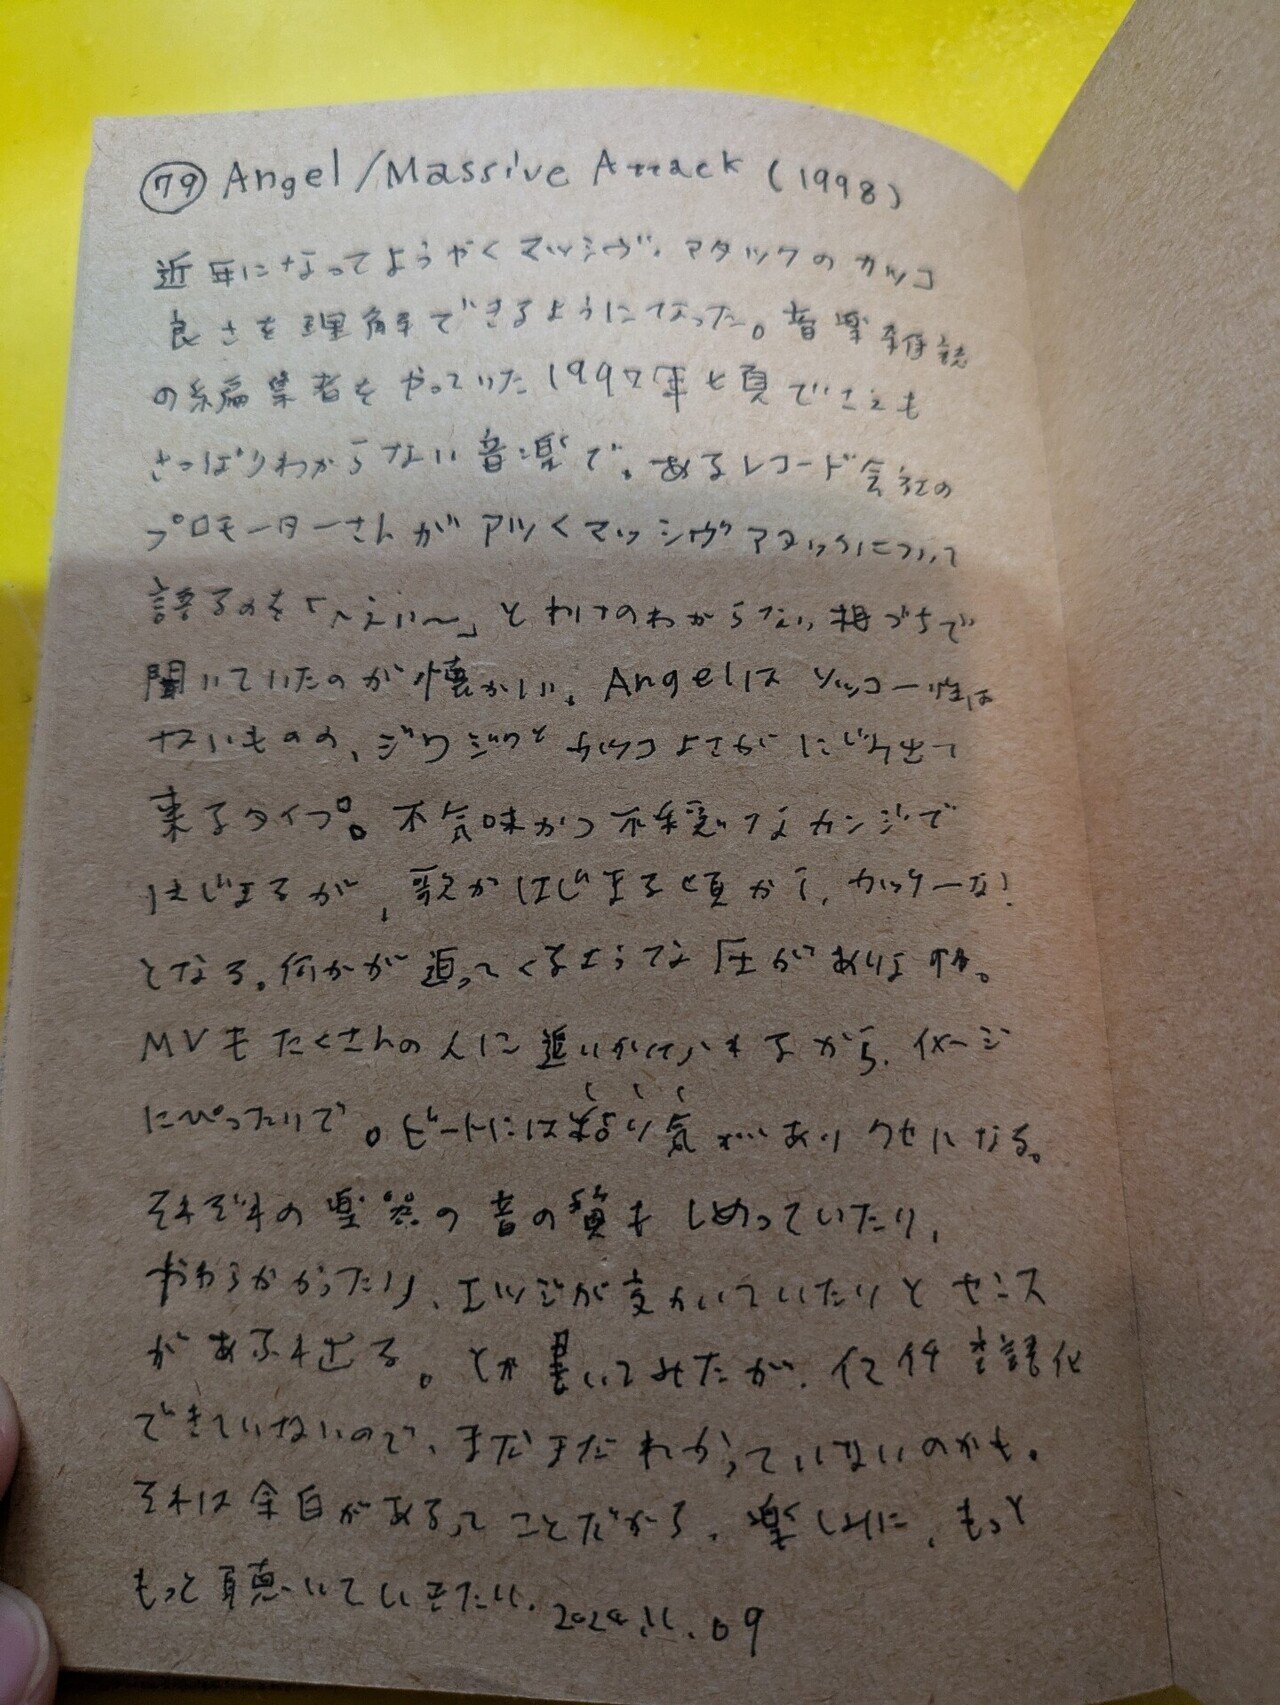 79 Angel/Massive Attack (1998)
近年になってようやくマッシヴ・アタックのカッコ
良さを理解できるようになった。音楽雑誌
の編集者をやっていた1997年頃でさえも
さっぱりわからない音楽で、あるレコード会社の
プロモーターさんがアツくマッシヴアタックについて
語るのを「へえい〜」とわけのわからない相づちで
聞いていたのが懐かしい。Angelはソッコー性は
ないものの、ジワジワとカッコよさがにじみ出て
来るタイプ。不気味かつ不穏なカンジで
はじまるが、歌がはじまる頃から、カッケーな!
となる。何かが迫ってくるような圧がありますね。
MVもたくさんの人に追いかけられるから、イメージ
にぴったりで。ビートには粘り気がありクセになる。
それぞれの楽器の音の質もしめっていたり、
やわらかかったり、エッジが立っていたりとセンス
があふれ出る。とか書いてみたが、イマイチ言語化
できていないので、まだまだわかっていないのかも。
それは余白があるってことだから、楽しみに、もっと
もっと聴いていきたい。2024.11.09